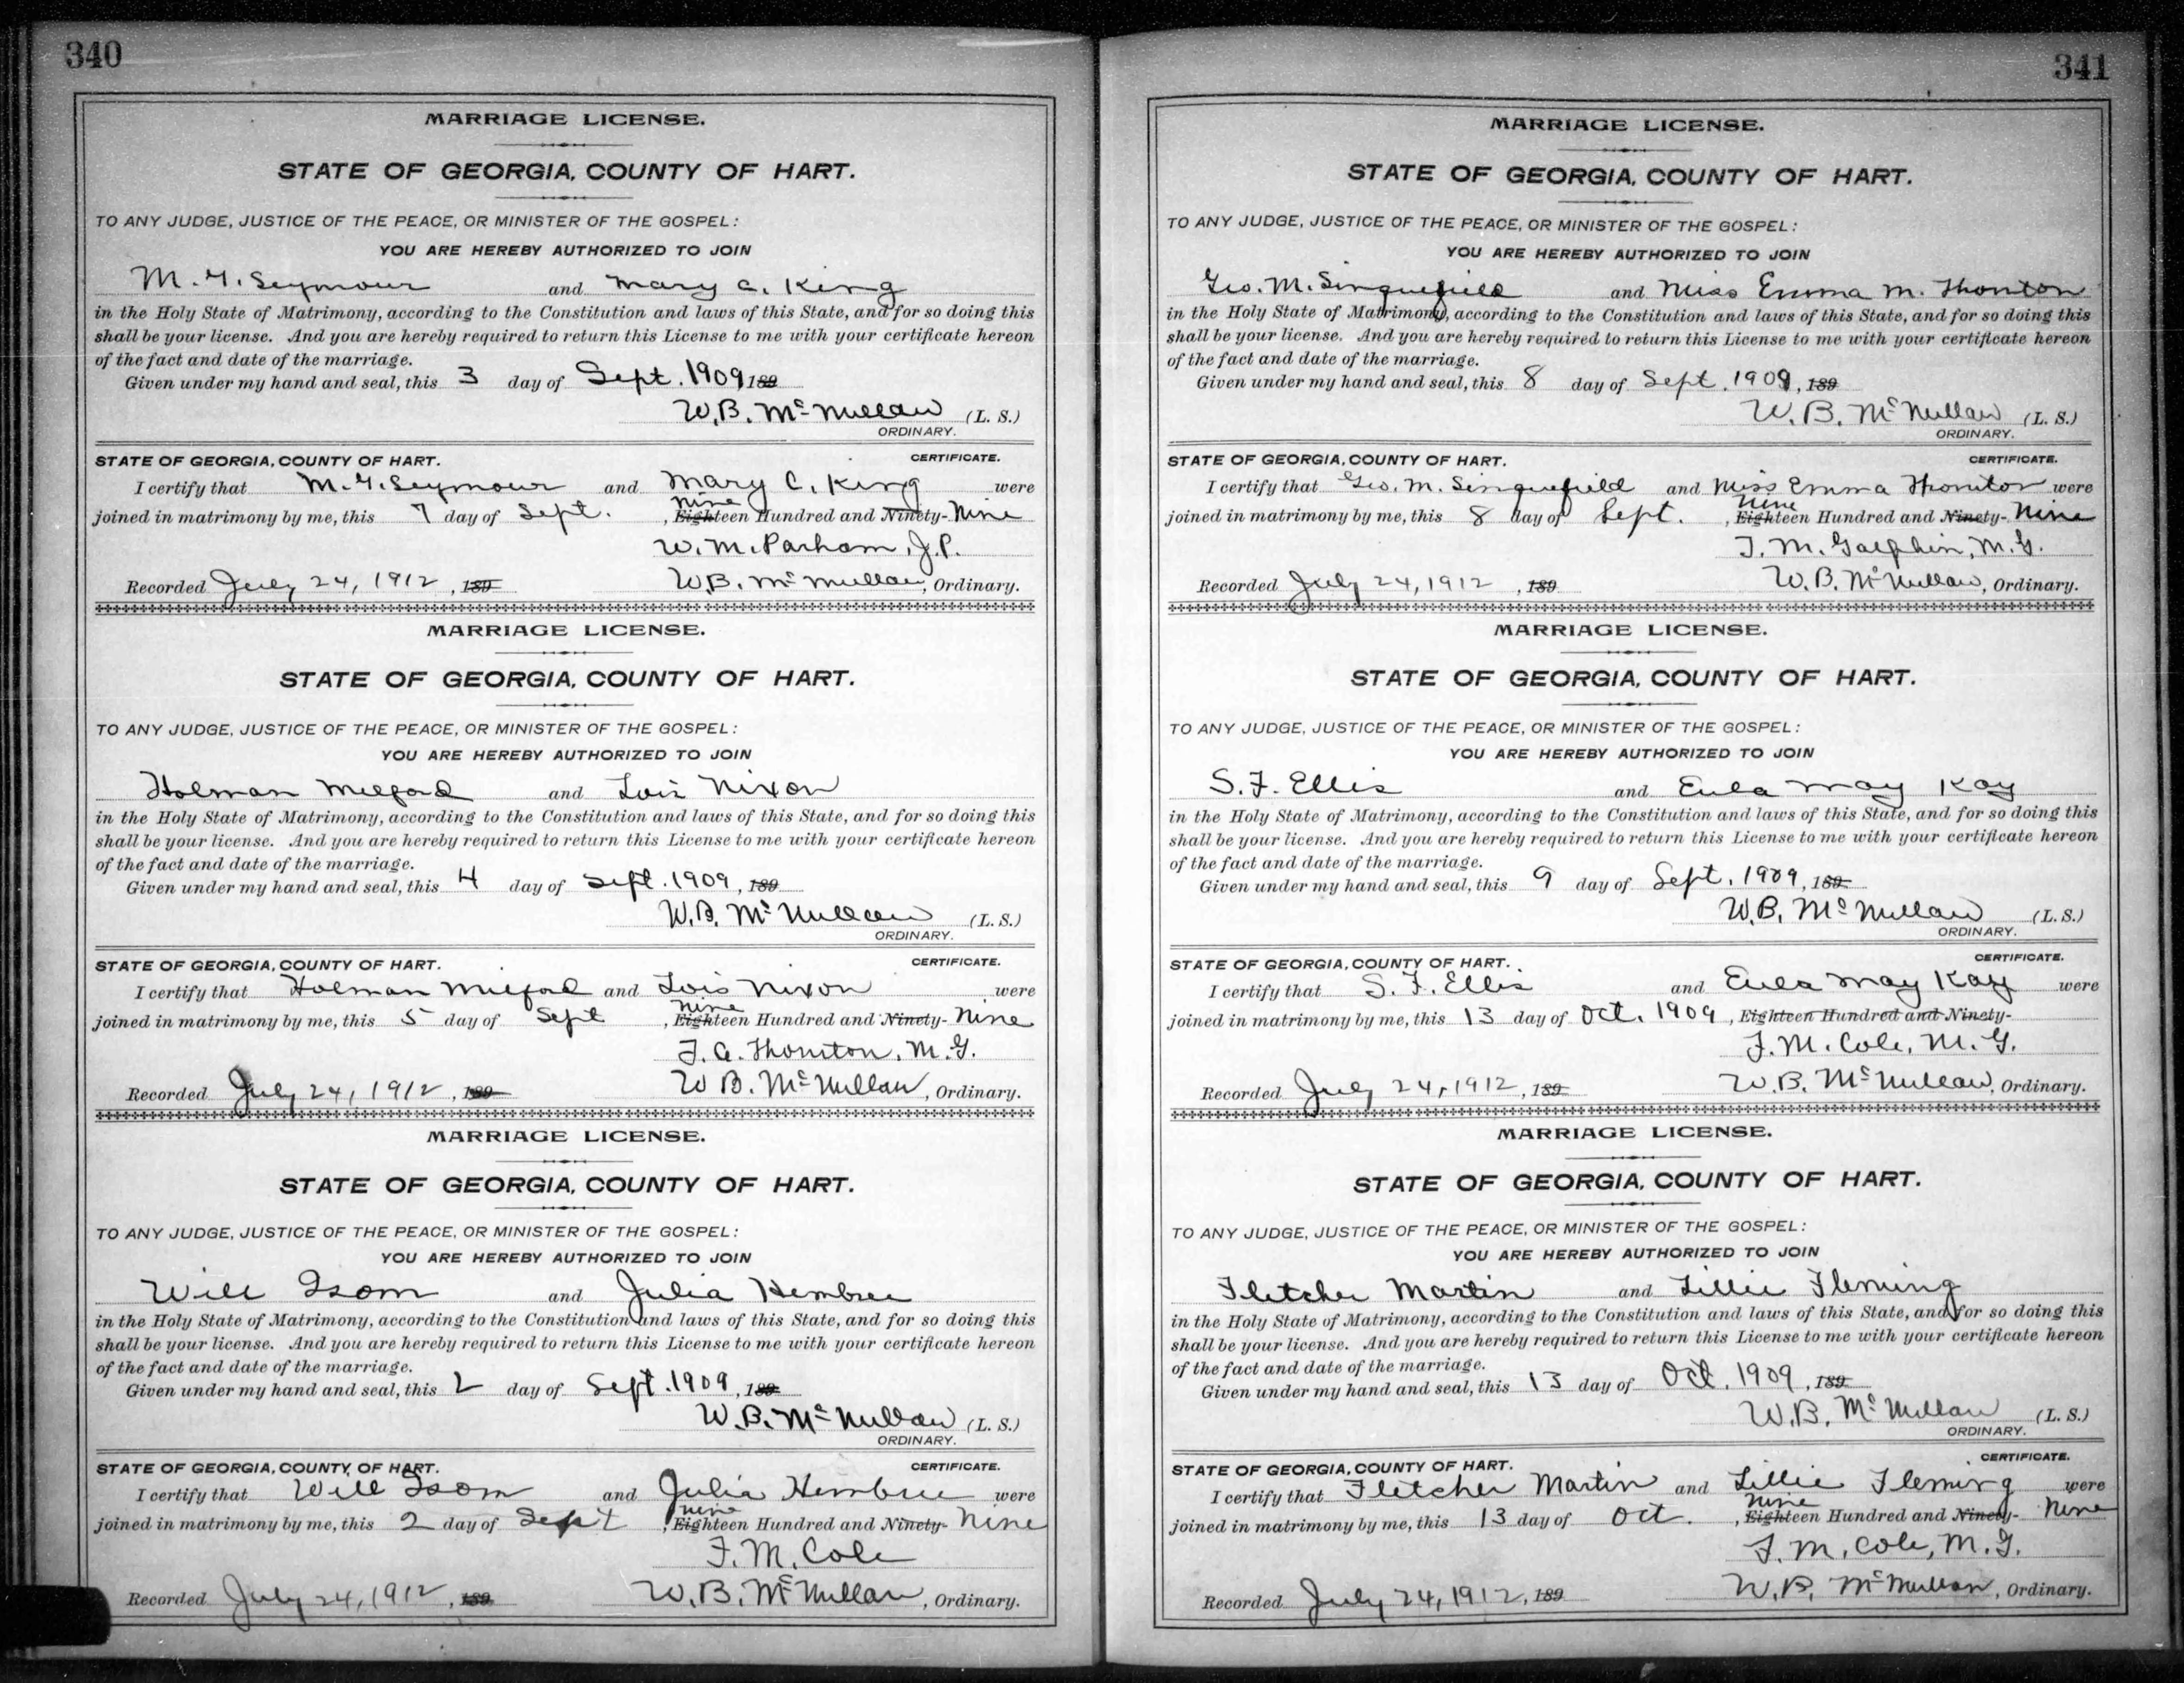 340
MARRIAGE LICENSE.
STATE OF GEORGIA, COUNTY OF HART.
TO ANY JUDGE, JUSTICE OF THE PEACE, OR MINISTER OF THE GOSPEL:
YOU ARE HEREBY AUTHORIZED TO JOIN
M. Y. Seymour and Mary C. King
in the Holy State of Matrimony, according to the Constitution and laws of this State, and for so doing this
shall be your license. And you are hereby required to return this License to me with your certificate hereon
of the fact and date of the marriage.
Given under my hand and seal, this 3 day of Sept. 1909 189
W. B. McMullan (L. S.)
ORDINARY.
STATE OF GEORGIA, COUNTY OF HART. CERTIFICATE.
I certify that M. Y. Seymour and Mary C. King were
Nine
joined in matrimony by me, this 7 day of Sept. , Eighteen Hundred and Ninety- Nine
W. M. Parham, J.P.
Recorded July 24, 1912 , 189 W. B. McMullan, Ordinary.
MARRIAGE LICENSE.
STATE OF GEORGIA, COUNTY OF HART.
TO ANY JUDGE, JUSTICE OF THE PEACE, OR MINISTER OF THE GOSPEL:
YOU ARE HEREBY AUTHORIZED TO JOIN
Holman Milford and Lois Nixon
in the Holy State of Matrimony, according to the Constitution and laws of this State, and for so doing this
shall be your license. And you are hereby required to return this License to me with your certificate hereon
of the fact and date of the marriage.
Given under my hand and seal, this 4 day of Sept. 1909 , 189
W. B. McMullan (L. S.)
ORDINARY.
STATE OF GEORGIA, COUNTY OF HART. CERTIFICATE.
I certify that Holman Milford and Lois Nixon were
Nine
joined in matrimony by me, this 5 day of Sept , Eighteen Hundred and Ninety- Nine
T. A. Thornton, M. G.
Recorded July 24, 1912 , 189 W. B. McMullan, Ordinary.
MARRIAGE LICENSE.
STATE OF GEORGIA, COUNTY OF HART.
TO ANY JUDGE, JUSTICE OF THE PEACE, OR MINISTER OF THE GOSPEL:
YOU ARE HEREBY AUTHORIZED TO JOIN
Will Isom and Julia Hembree
in the Holy State of Matrimony, according to the Constitution and laws of this State, and for so doing this
shall be your license. And you are hereby required to return this License to me with your certificate hereon
of the fact and date of the marriage.
Given under my hand and seal, this 2 day of Sept. 1909 , 189
W. B. McMullan (L. S.)
ORDINARY.
STATE OF GEORGIA, COUNTY OF HART. CERTIFICATE.
I certify that Will Isom and Julia Hembree were
nine
joined in matrimony by me, this 2 day of Sept , Eighteen Hundred and Ninety- Nine
F. M. Cole
Recorded July 24, 1912 , 189 W. B. McMullan, Ordinary.
341
MARRIAGE LICENSE.
STATE OF GEORGIA, COUNTY OF HART.
TO ANY JUDGE, JUSTICE OF THE PEACE, OR MINISTER OF THE GOSPEL:
YOU ARE HEREBY AUTHORIZED TO JOIN
Geo. M. Sinquefield and Miss Emma M. Thornton
in the Holy State of Matrimony, according to the Constitution and laws of this State, and for so doing this
shall be your license. And you are hereby required to return this License to me with your certificate hereon
of the fact and date of the marriage.
Given under my hand and seal, this 8 day of Sept. 1909 , 189
W. B. McMullan (L. S.)
ORDINARY.
STATE OF GEORGIA, COUNTY OF HART. CERTIFICATE.
I certify that Geo. M. Sinquefield and Miss Emma Thornton were
Nine
joined in matrimony by me, this 8 day of Sept. , Eighteen Hundred and Ninety- Nine
T. M. Galphin, M. G.
Recorded July 24, 1912 , 189 W. B. McMullan, Ordinary.
MARRIAGE LICENSE.
STATE OF GEORGIA, COUNTY OF HART.
TO ANY JUDGE, JUSTICE OF THE PEACE, OR MINISTER OF THE GOSPEL:
YOU ARE HEREBY AUTHORIZED TO JOIN
S. F. Ellis and Eula May Kay
in the Holy State of Matrimony, according to the Constitution and laws of this State, and for so doing this
shall be your license. And you are hereby required to return this License to me with your certificate hereon
of the fact and date of the marriage.
Given under my hand and seal, this 9 day of Sept. 1909 , 189
W. B. McMullan (L. S.)
ORDINARY.
STATE OF GEORGIA, COUNTY OF HART. CERTIFICATE.
I certify that S. F. Ellis and Eula May Kay were
joined in matrimony by me, this 13 day of Oct. 1909 , Eighteen Hundred and Ninety-
F. M. Cole, M. G.
Recorded July 24, 1912 , 189 W. B. McMullan, Ordinary.
MARRIAGE LICENSE.
STATE OF GEORGIA, COUNTY OF HART.
TO ANY JUDGE, JUSTICE OF THE PEACE, OR MINISTER OF THE GOSPEL:
YOU ARE HEREBY AUTHORIZED TO JOIN
Fletcher Martin and Lillie Fleming
in the Holy State of Matrimony, according to the Constitution and laws of this State, and for so doing this
shall be your license. And you are hereby required to return this License to me with your certificate hereon
of the fact and date of the marriage.
Given under my hand and seal, this 13 day of Oct. 1909 , 189
W. B. McMullan (L. S.)
ORDINARY.
STATE OF GEORGIA, COUNTY OF HART. CERTIFICATE.
I certify that Fletcher Martin and Lillie Fleming were
nine
joined in matrimony by me, this 13 day of Oct. , Eighteen Hundred and Ninety- Nine
F. M. Cole, M. G.
Recorded July 24, 1912 , 189 W. B. McMullan, Ordinary.